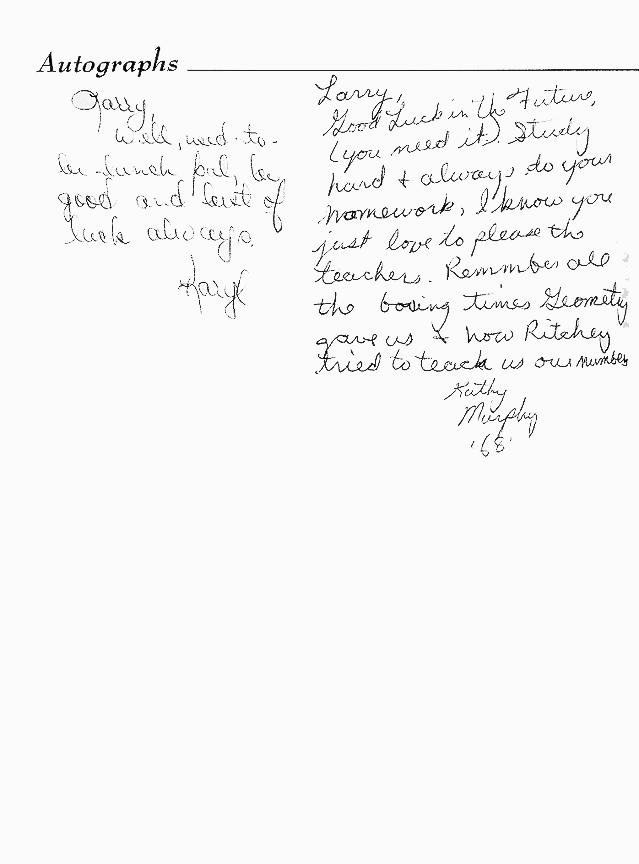 Autographs
Larry,
Well, used-to-
be-lunch pal, be
good and best of
luck always.
Karyl
Larry,
Good Luck in the Future,
(you need it). Study
hard + always do your
homework, I know you
just love to please the
teachers. Remmber all
the boring times Geometry
gave us & how Ritchey
tried to teach us our number
Kathy
Murphy
'68'